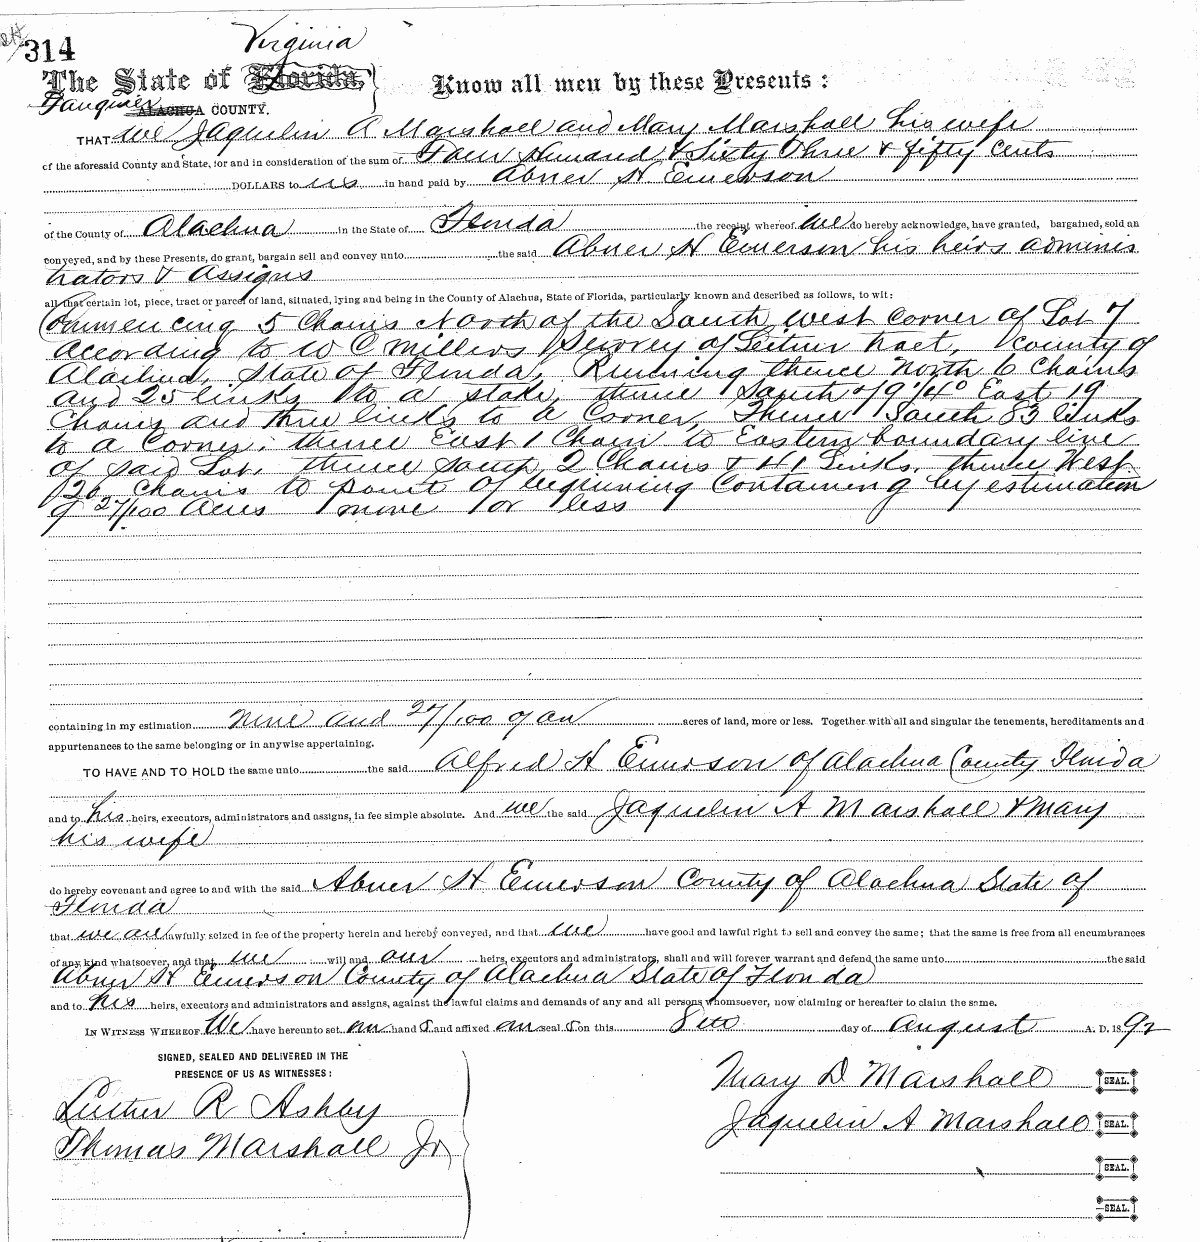 314
Virginia
The State of Florida,
Fauquier ALACHUA COUNTY.
Know all men by these Presents:
THAT we Jaquelin A Marshall and Mary Marshall his wife
of the aforesaid County and State, for and in consideration of the sum of Four Hundred & Sixty Three & fifty cents
DOLLARS to us in hand paid by Abner H Emerson
of the County of Alachua in the State of Florida the receipt whereof we do hereby acknowledge, have granted, bargained, sold an
conveyed, and by these Presents, do grant, bargain sell and convey unto the said Abner H Emerson his heirs adminis
trators & Assigns
all that certain lot, piece, tract or parcel of land, situated, lying and being in the County of Alachua, State of Florida, particularly known and described as follows, to wit:
Commencing 5 Chains North of the South west corner of Lot 7
according to W C Millers Survey of Leitner tract, County of
Alachua, State of Florida, Running thence North 6 Chains
and 25 links to a stake, thence South 79 1/4° East 19
Chains and three links to a Corner, Thence South 83 links
to a Corner; thence East 1 Chain to Eastern boundary line
of said Lot, thence south 2 Chains & 41 Links, thence West
20 Chains to point of beginning Containing by estimation
9 27/100 Acres more or less
containing in my estimation nine and 27/100 of an acres of land, more or less. Together with all and singular the tenements, hereditaments and
appurtenances to the same belonging or in anywise appertaining.
TO HAVE AND TO HOLD the same unto the said Alfred H Emerson of Alachua County Florida
and to his heirs, executors, administrators and assigns, in fee simple absolute. And we the said Jaquelin A Marshall & Mary
his wife
do hereby covenant and agree to and with the said Abner H Emerson County of Alachua State of
Florida
that we are lawfully seized in fee of the property herein and hereby conveyed, and that we have good and lawful right to sell and convey the same; that the same is free from all encumbrances
of any kind whatsoever, and that we will and our heirs, executors and administrators, shall and will forever warrant and defend the same unto the said
Abner H Emerson County of Alachua State of Florida
and to his heirs, executors and administrators and assigns, against the lawful claims and demands of any and all persons whomsoever, now claiming or hereafter to claim the same.
IN WITNESS WHEREOF We have hereunto set our hand s and affixed our seal s on this 8th day of August A. D. 1892
SIGNED, SEALED AND DELIVERED IN THE
PRESENCE OF US AS WITNESSES:
Luther R Ashby
Thomas Marshall Jr
Mary D Marshall SEAL.
Jaquelin A Marshall SEAL.
SEAL.
SEAL.